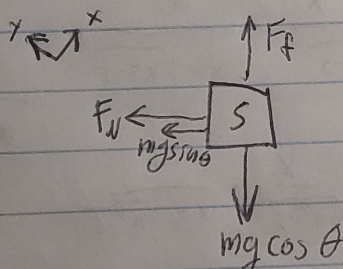 y x
F_f
F_N S
mg sin θ
mg cos θ